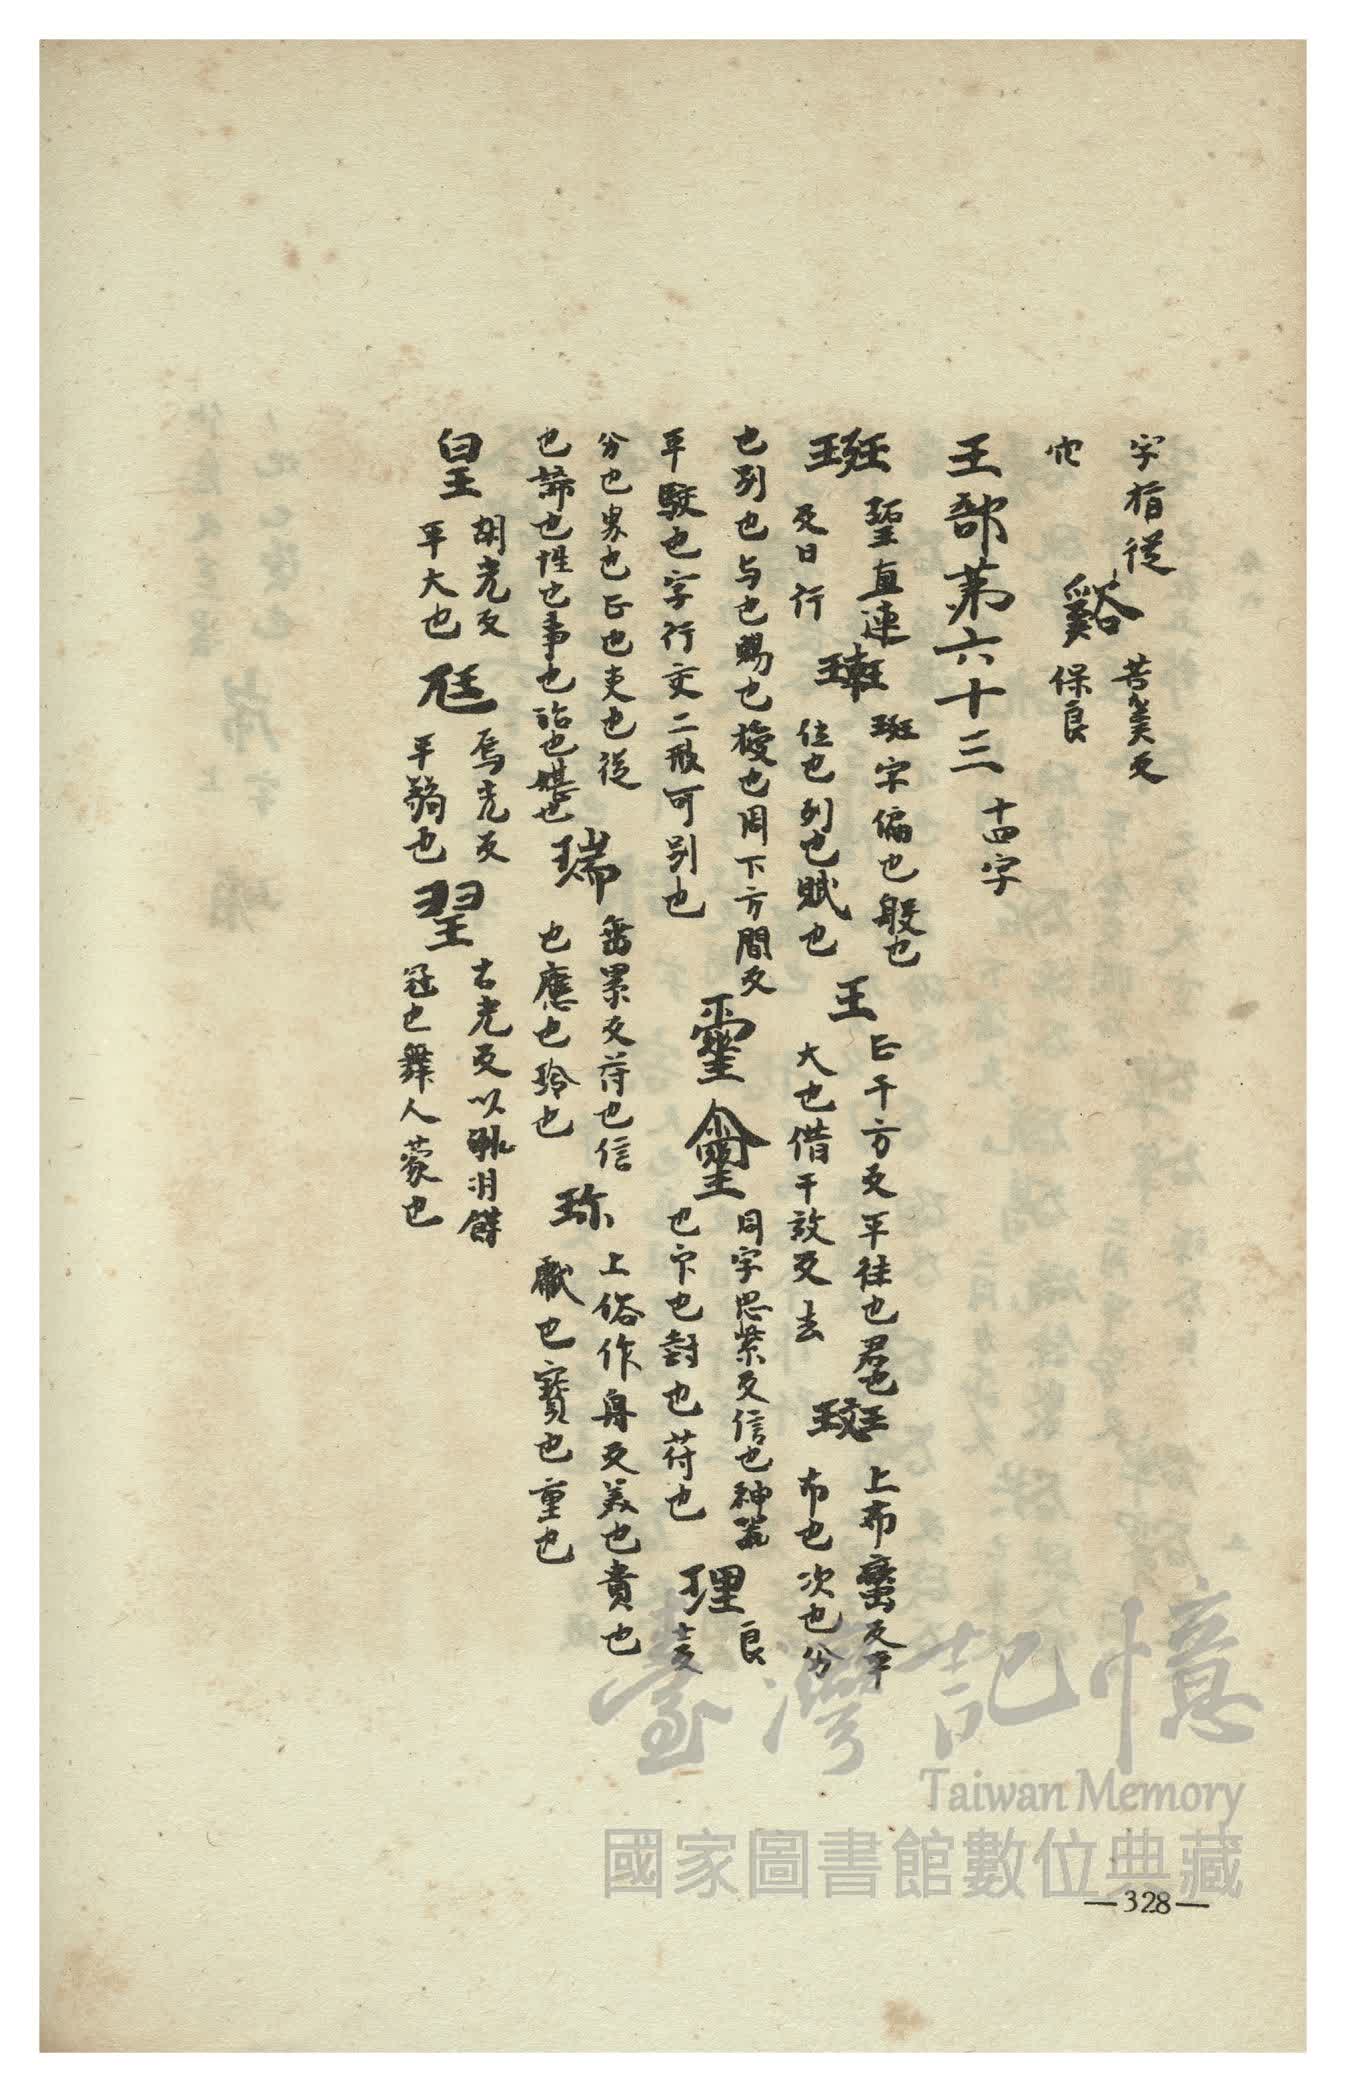 字指從
也
谿
苦奚反
保良
王部第六十三 十四字
班
瑿直連
反日行
斑字偏也般也
位也列也賦也
王
正于方反平往也君也
大也借于放反去
斑
上布蠻反平
布也次也分
也別也与也賜也授也同下方間反
平駁也字行文二形可別也
靈
璽
同字思紫反信也神器
也印也封也苻也
理
良士反
分也界也正也吏也從
也諦也性也事也治也媒也
瑞
垂累反苻也信
也應也玲也
珎
上俗作身反美也貴也
獻也寶也重也
皇
胡光反
平大也
尪
烏光反
平鶸也
翌
古光反以羽飾
冠也舞人蒙也
—328—
臺灣記憶
Taiwan Memory
國家圖書館數位典藏